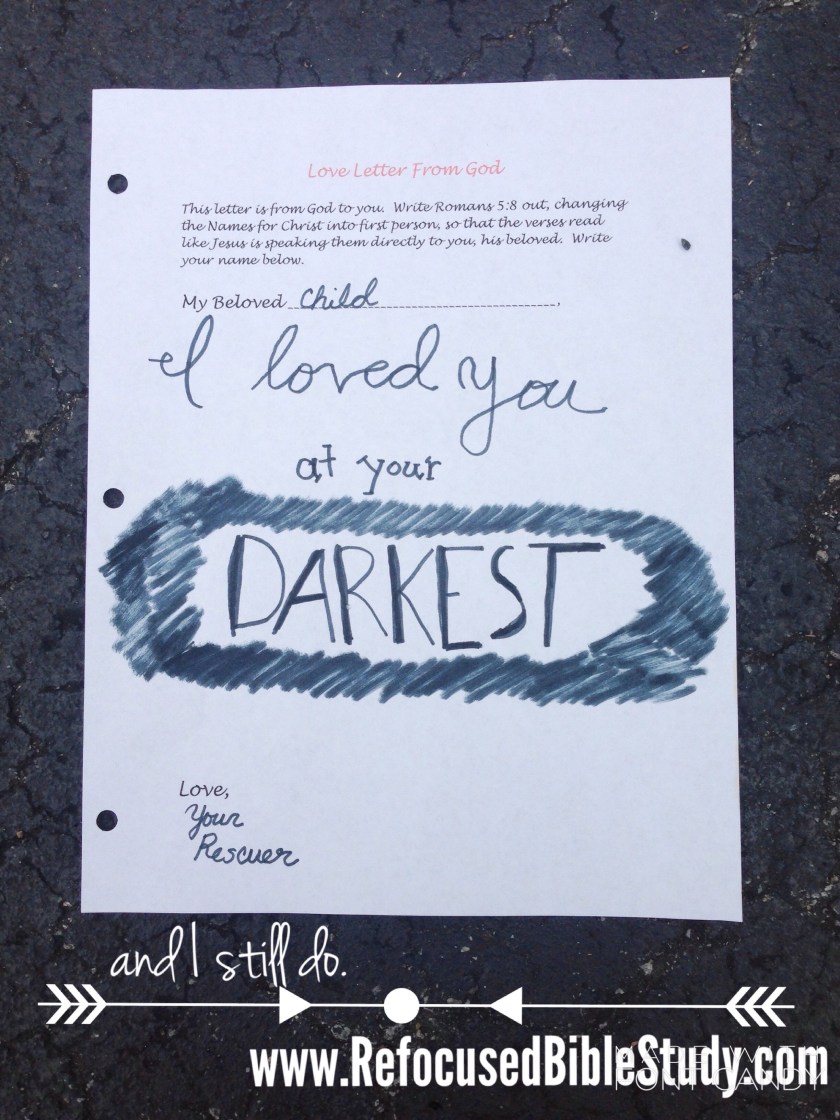 Love Letter From God
This letter is from God to you. Write Romans 5:8 out, changing
the Names for Christ into first person, so that the verses read
like Jesus is speaking them directly to you, his beloved. Write
your name below.
My Beloved Child,
I loved you
at your
DARKEST
Love,
Your
Rescuer
and I still do.
www.RefocusedBibleStudy.com
MADE WITH
FONT CANDY